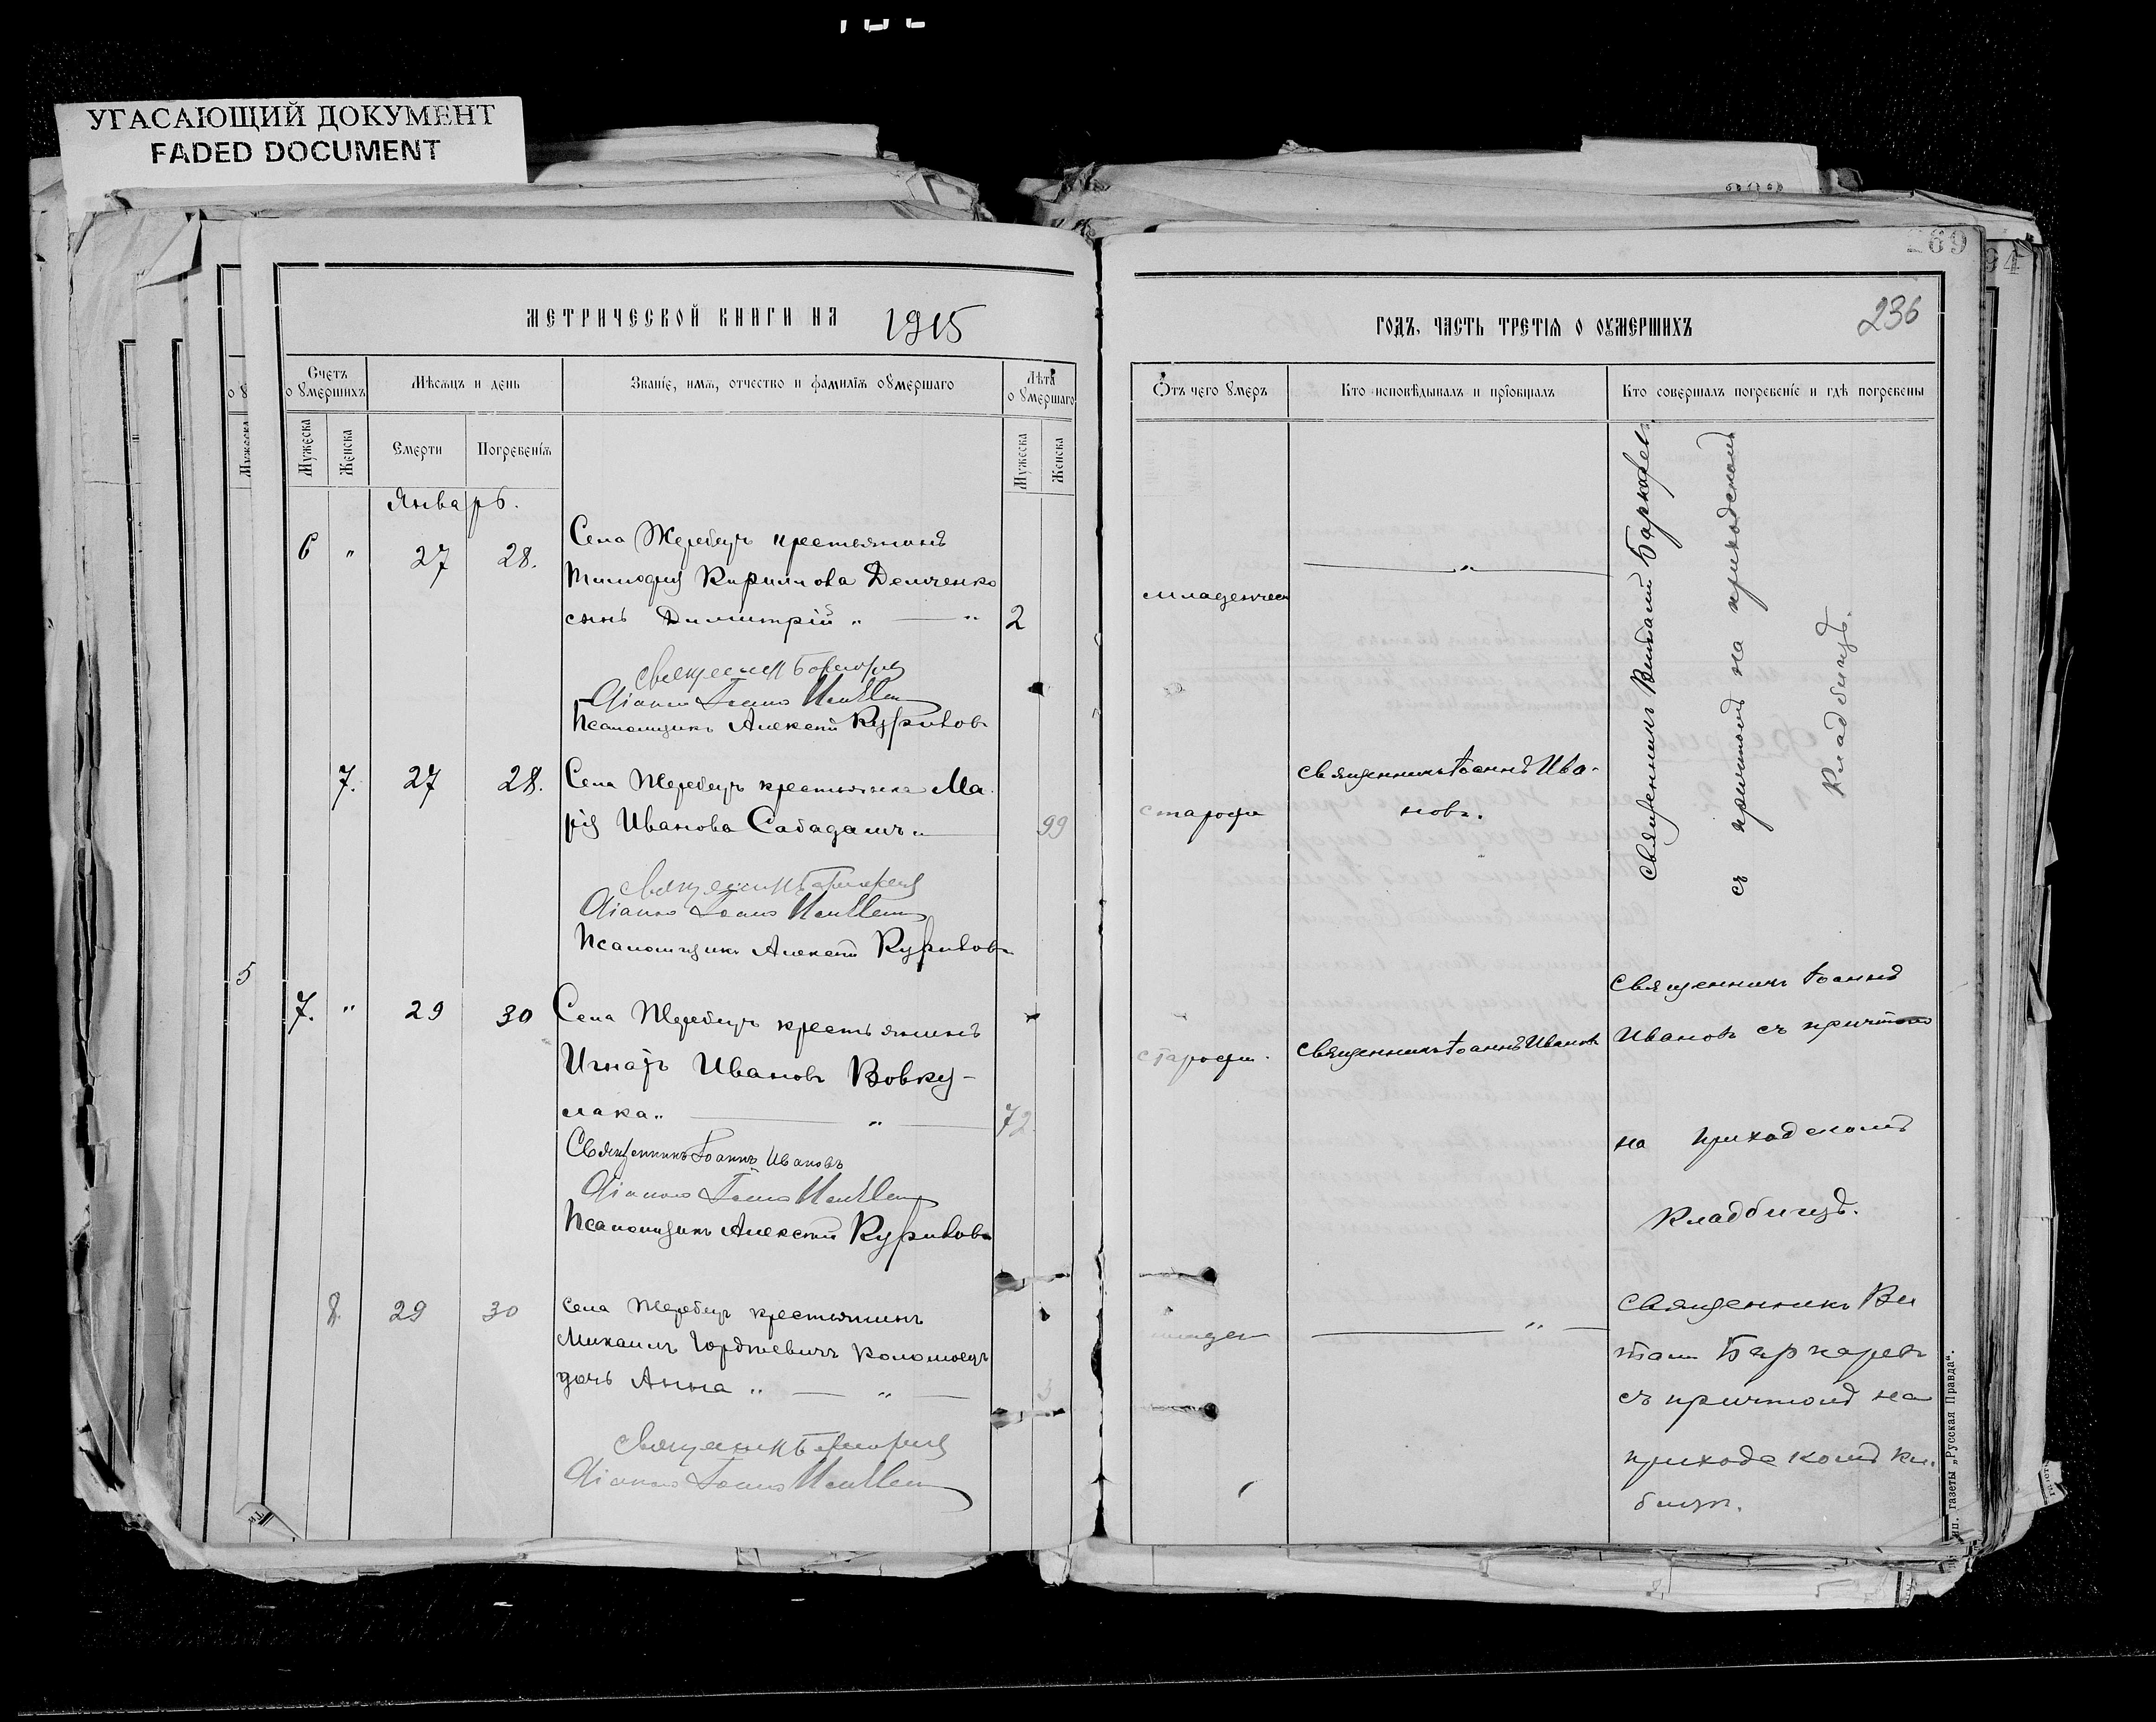 УГАСАЮЩИЙ ДОКУМЕНТ
FADED DOCUMENT
МЕТРИЧЕСКОЙ КНИГИ НА 1915
Счетъ
о умершихъ
Мѣсяцъ и день
Званіе, имя, отчество и фамилія оумершаго
Лѣта
оумершаго
Мужеска
Женска
Смерти
Погребенія
Мужеска
Женска
Январь.
6 " 27 28.
Села Жеребецъ крестьянинъ
Тимофея Кириллова Демченко
сынъ Димитрій " — " 2
Діаконъ
Псаломщикъ Алексѣй Куриловъ
7. 27 28.
Села Жеребецъ крестьянка Ма-
рія Иванова Сабадашъ " 99
Діаконъ
Псаломщикъ Алексѣй Куриловъ
5
7. " 29 30
Села Жеребецъ крестьянинъ
Игнатъ Ивановъ Вовку-
лака " — " — 72
Священникъ Іоаннъ Ивановъ
Діаконъ
Псаломщикъ Алексѣй Куриловъ
8. 29 30
Села Жеребецъ крестьянинъ
Михаилъ Юрьевичъ Коломоецъ
дочь Анна " — " — 3
Діаконъ
269
94
236
ГОДЪ, ЧАСТЬ ТРЕТІЯ О ОУМЕРШИХЪ
Отъ чего умеръ
Кто исповѣдывалъ и пріобщалъ
Кто совершалъ погребеніе и гдѣ погребены
младенчес
— " —
Священникъ Виталій Баркаревъ
съ причтомъ на приходскомъ
кладбищѣ.
старости
священникъ Іоаннъ Ива-
новъ.
старости.
священникъ Іоаннъ Ивановъ
священникъ Іоаннъ
Ивановъ съ причтомъ
на приходскомъ
кладбищѣ.
младен
— " —
священникъ Ви
талій Баркаревъ
съ причтомъ на
приходскомъ кл.
бищѣ.
газеты „Русская Правда“.